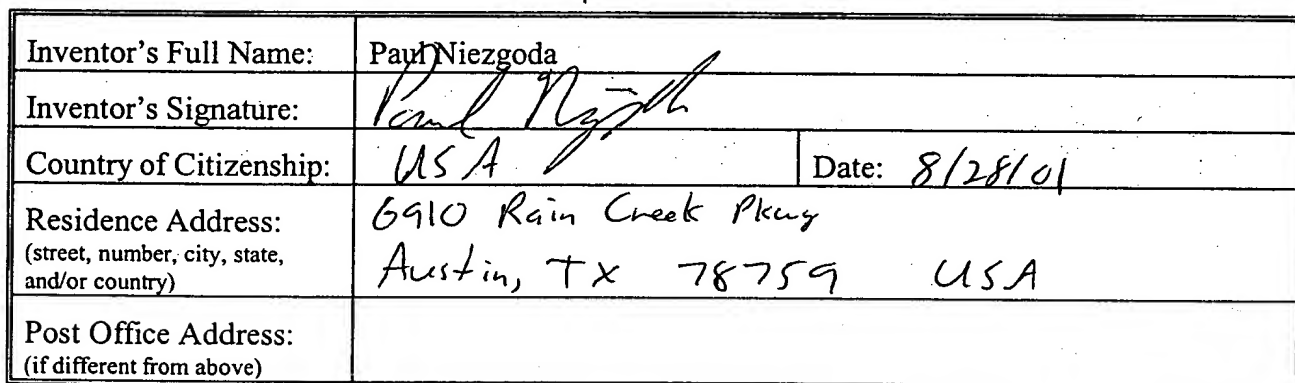 Inventor's Full Name: Paul Niezgoda
Inventor's Signature: Paul
Country of Citizenship: USA Date: 8/28/01
Residence Address: 6910 Rain Creek Pkwy
(street, number, city, state,
and/or country) Austin, TX 78759 USA
Post Office Address:
(if different from above)